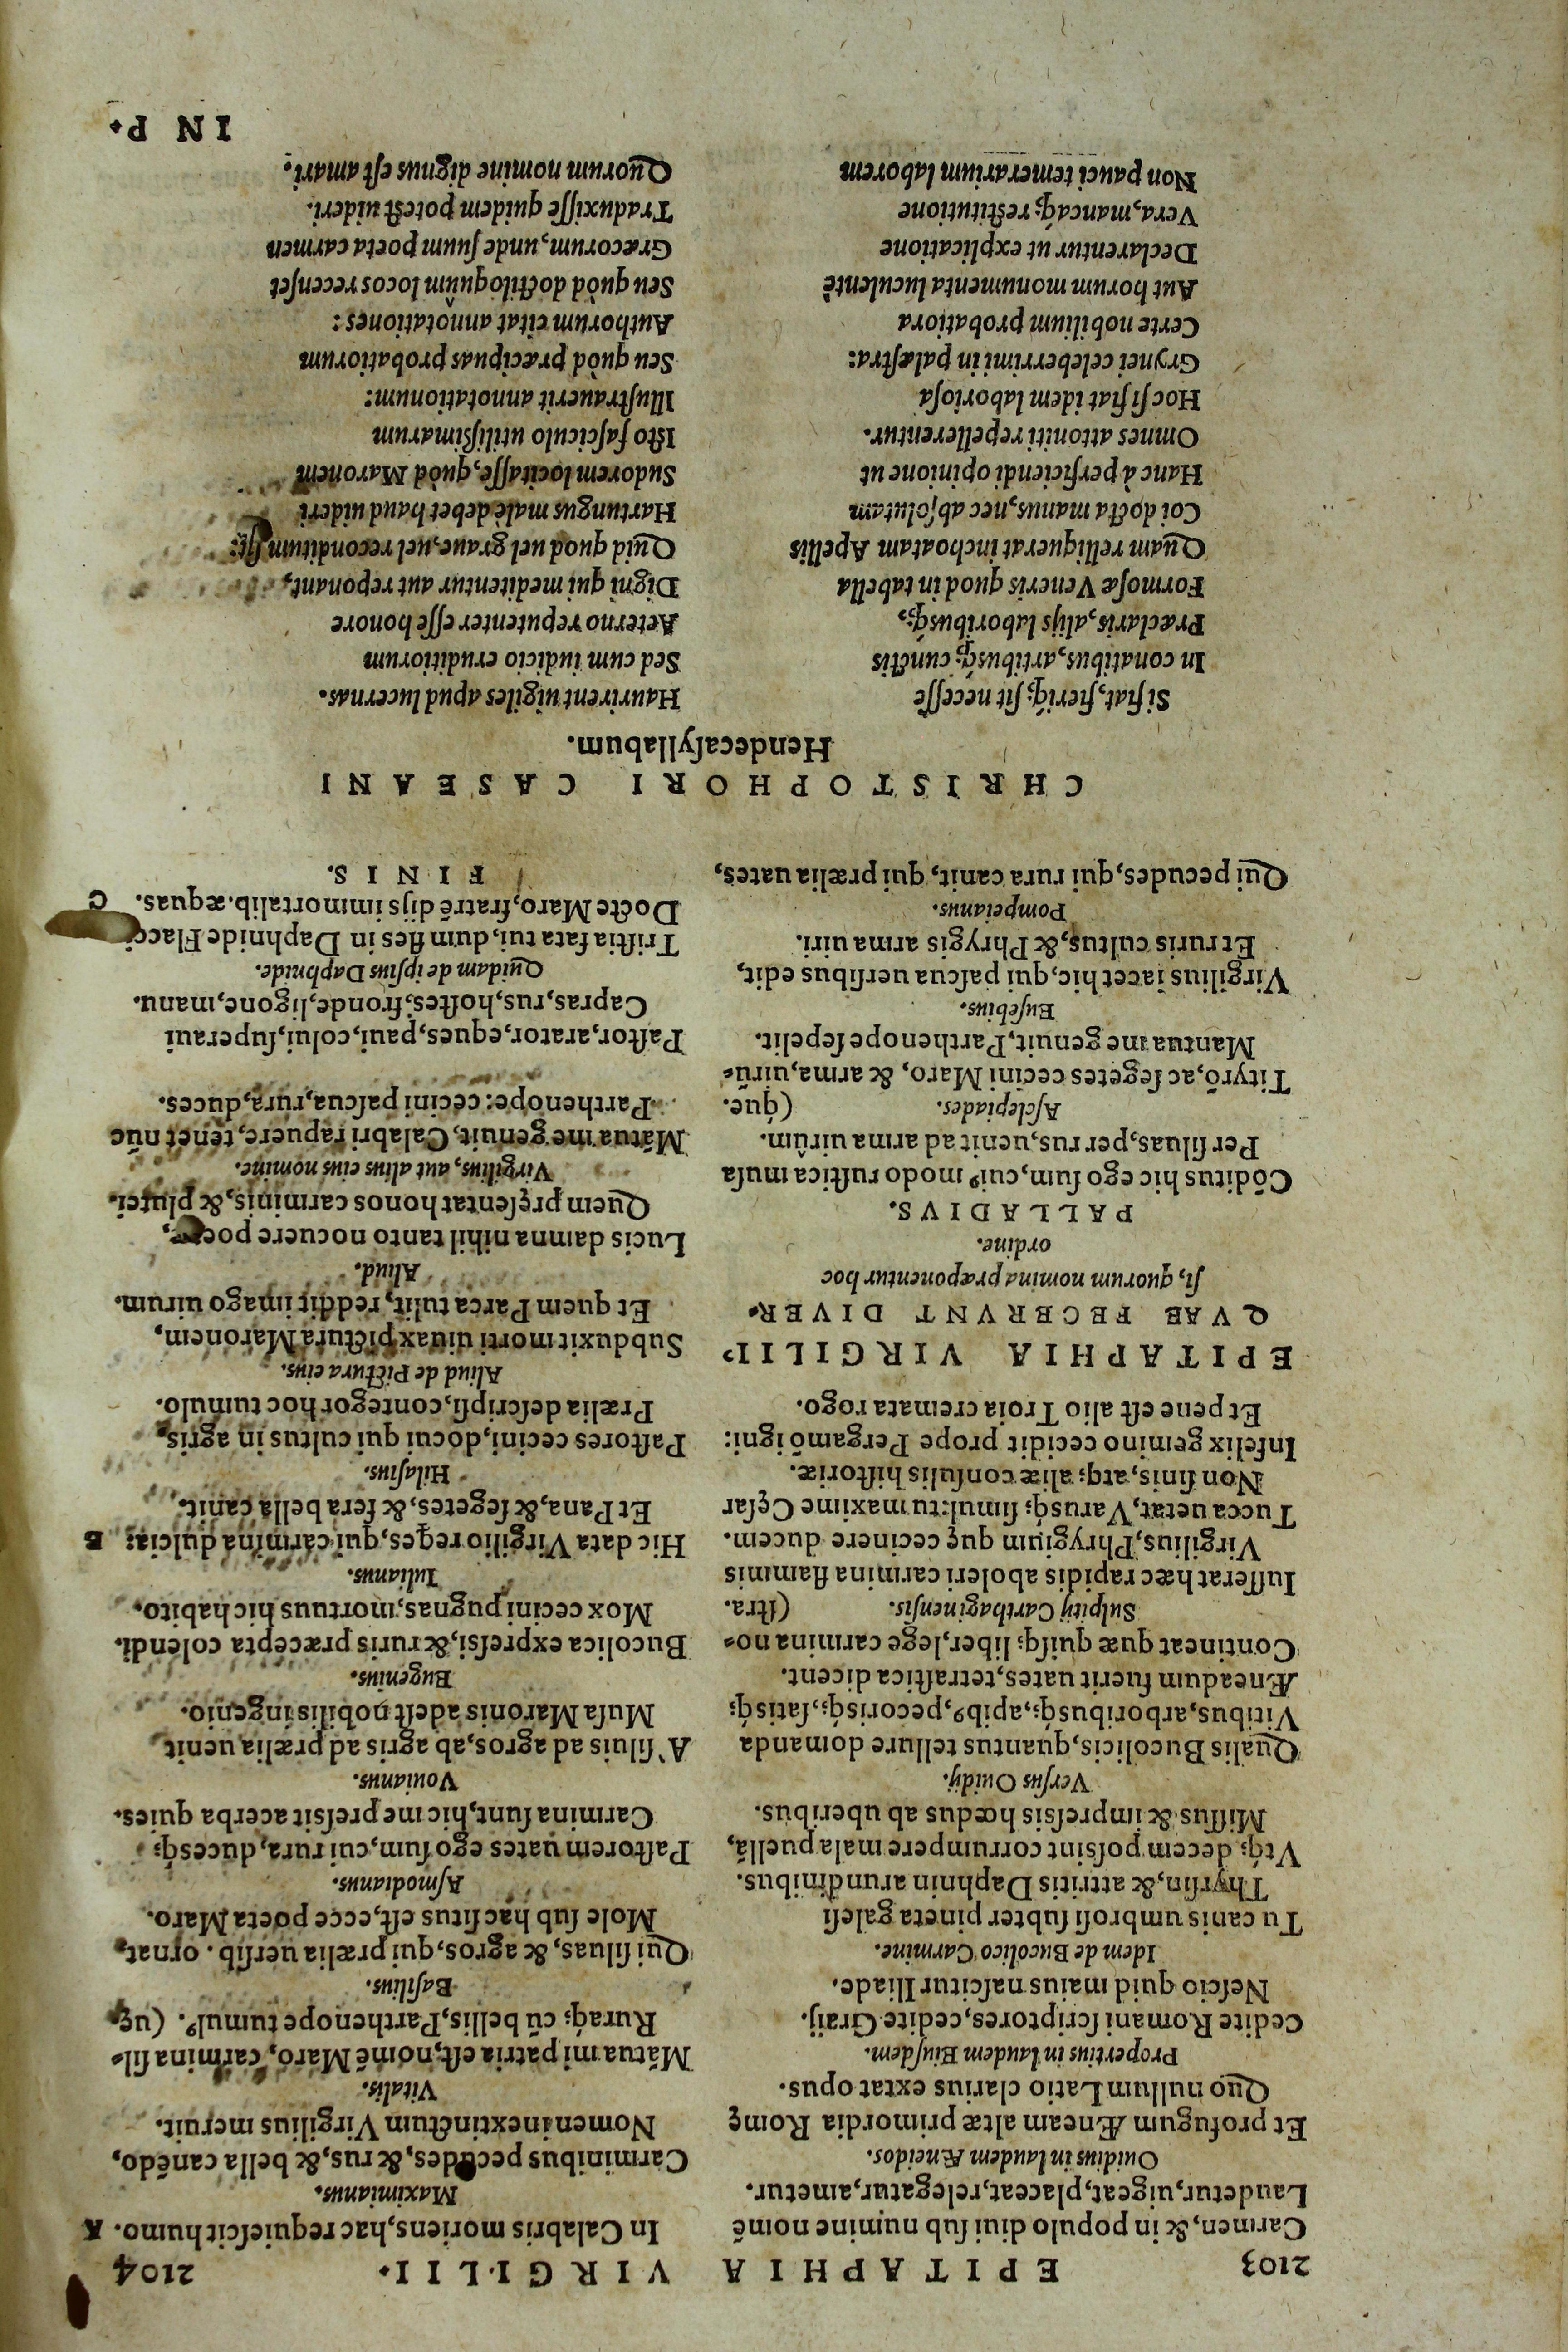 2103 EPITAPHIA VIRGILII. 2104
Carmen,& in populo diui ſub numine nomē
Laudetur,uigeat,placeat,relegatur,ametur.
Ouidius in laudem Æneidos.
Et profugum Æneam altæ primordia Romę
Quo nullum Latio clarius extat opus.
Propertius in laudem Eiuſdem.
Cedite Romani ſcriptores,cedite Graij.
Neſcio quid maius naſcitur Iliade.
Idem de Bucolico Carmine.
Tu canis umbroſi ſubter pineta galeſi
Thyrſin,& attritis Daphnin arundinibus.
Vtq́; decem poſsint corrumpere mala puellā,
Miſſus & impreſsis hœdus ab uberibus.
Verſus Ouidij.
Qualis Bucolicis,quantus tellure domanda
Vitibus,arboribusq́;,apibꝰ,pecorisq́;,ſatisq́;
Æneadum fuerit uates,tetraſtica dicent.
Contineat quæ quiſq; liber,lege carmina no-
Sulpitij Carthaginenſis. (ſtra.
Iuſſerat hæc rapidis aboleri carmina flammis
Virgilius,Phrygium quę cecinere ducem.
Tucca uetat,Varusq́; ſimul:tu maxime Cęſar
Non ſinis,atq; aliæ conſulis hiſtoriæ.
Infelix gemino cecidit prope Pergamō igni:
Et pene eſt alio Troia cremata rogo.
EPITAPHIA VIRGILII,
QVAE FECERVNT DIVER-
ſi, quorum nomina præponentur hoc
ordine.
PALLADIVS.
Cōditus hic ego ſum,cuiꝰ modo ruſtica muſa
Per ſiluas,per rus,uenit ad arma uirûm.
Aſclepiades. (q́ue.
Tityrō,ac ſegetes cecini Maro, & arma,uirū-
Mantua me genuit,Parthenope ſepelit.
Euſebius.
Virgilius iacet hic,qui paſcua uerſibus edit,
Et ruris cultus,& Phrygis arma uiri.
Pompeianus.
Qui pecudes,qui rura canit, qui prælia uates,
In Calabris moriens,hac requieſcit humo. A
Maximianus.
Carminibus pecudes,& rus,& bella canēdo,
Nomen inextinctum Virgilius meruit.
Vitalis.
Mātua mi patria eſt,nomē Maro, carmina ſil-
Ruraq́; cū bellis,Parthenope tumulꝰ. (uę
Baſilius.
Qui ſiluas, & agros,qui prælia uerſib. ornat,
Mole ſub hac ſitus eſt,ecce poeta Maro.
Aſmodianus.
Paſtorem uates ego ſum,cui rura, ducesq́;
Carmina ſunt,hic me preſsit acerba quies.
Vonianus.
A` ſiluis ad agros,ab agris ad prælia uenit
Muſa Maronis adeſt nobilis ingenio.
Eugenius.
Bucolica expreſsi,& ruris præcepta colendi.
Mox cecini pugnas,mortuus hic habito.
Iulianus.
Hic data Virgilio reqes,qui carmina dulcia: B
Et Pana,& ſegetes,& fera bella canit.
Hilaſius.
Paſtores cecini,docui qui cultus in agris,
Prælia deſcripſi,contegor hoc tumulo.
Aliud de Pictura eius.
Subduxit morti uiuax pictura Maronem,
Et quem Parca tulit, reddit imago uirum.
Aliud.
Lucis damna nihil tanto nocuere
Quem pręſentat honos carminis,& plutei.
Virgilius, aut alius eius nomine.
Mātua me genuit, Calabri rapuere, tenet nūc
Parthenope: cecini paſcua,rura,duces.
Paſtor,arator,eques,paui,colui,ſuperaui
Capras,rus,hoſtes,fronde,ligone,manu.
Quidam de ipſius Daphnide.
Triſtia fata tui, dum fles in Daphnide Flacci,
Docte Maro,fratrē dijs immortalib.æquas. C
FINIS.
CHRISTOPHORI CASEANI
Hendecaſyllabum.
Si fiat,fieriq́; ſit neceſſe
In conatibus,artibusq́; cunctis
Præclaris,alijs laboribusq́;,
Formoſæ Veneris quod in tabella
Quam relliquerat inchoatam Apellis
Coi docta manus,nec abſolutam
Hanc à perficiendi opinione ut
Omnes attoniti repellerentur.
Hoc ſi fiat idem laborioſa
Grynei celeberrimi in palæſtra:
Certe nobilium probatiora
Aut horum monumenta luculentè
Declarentur ut explicatione
Vera,mancaq́; reſtitutione
Non pauci temerarium laborem
Haurirent uigiles apud lucernas.
Sed cum iudicio eruditiorum
Aeterno reputenter eſſe honore
Digni qui meditentur aut reponant,
Quid quod uel graue,uel reconditum ſit:
Hartungus malè debet haud uideri
Sudorem locitaſſe,quòd Maronem
Iſto faſciculo utiliſsimarum
Illuſtrauerit annotationum:
Seu quòd præcipuas probatiorum
Authorum citat annotationes:
Seu quòd doctiloquûm locos recenſet
Græcorum,unde ſuum poeta carmen
Traduxiſſe quidem poteſt uideri.
Quorum nomine dignus eſt amari.
IN P.